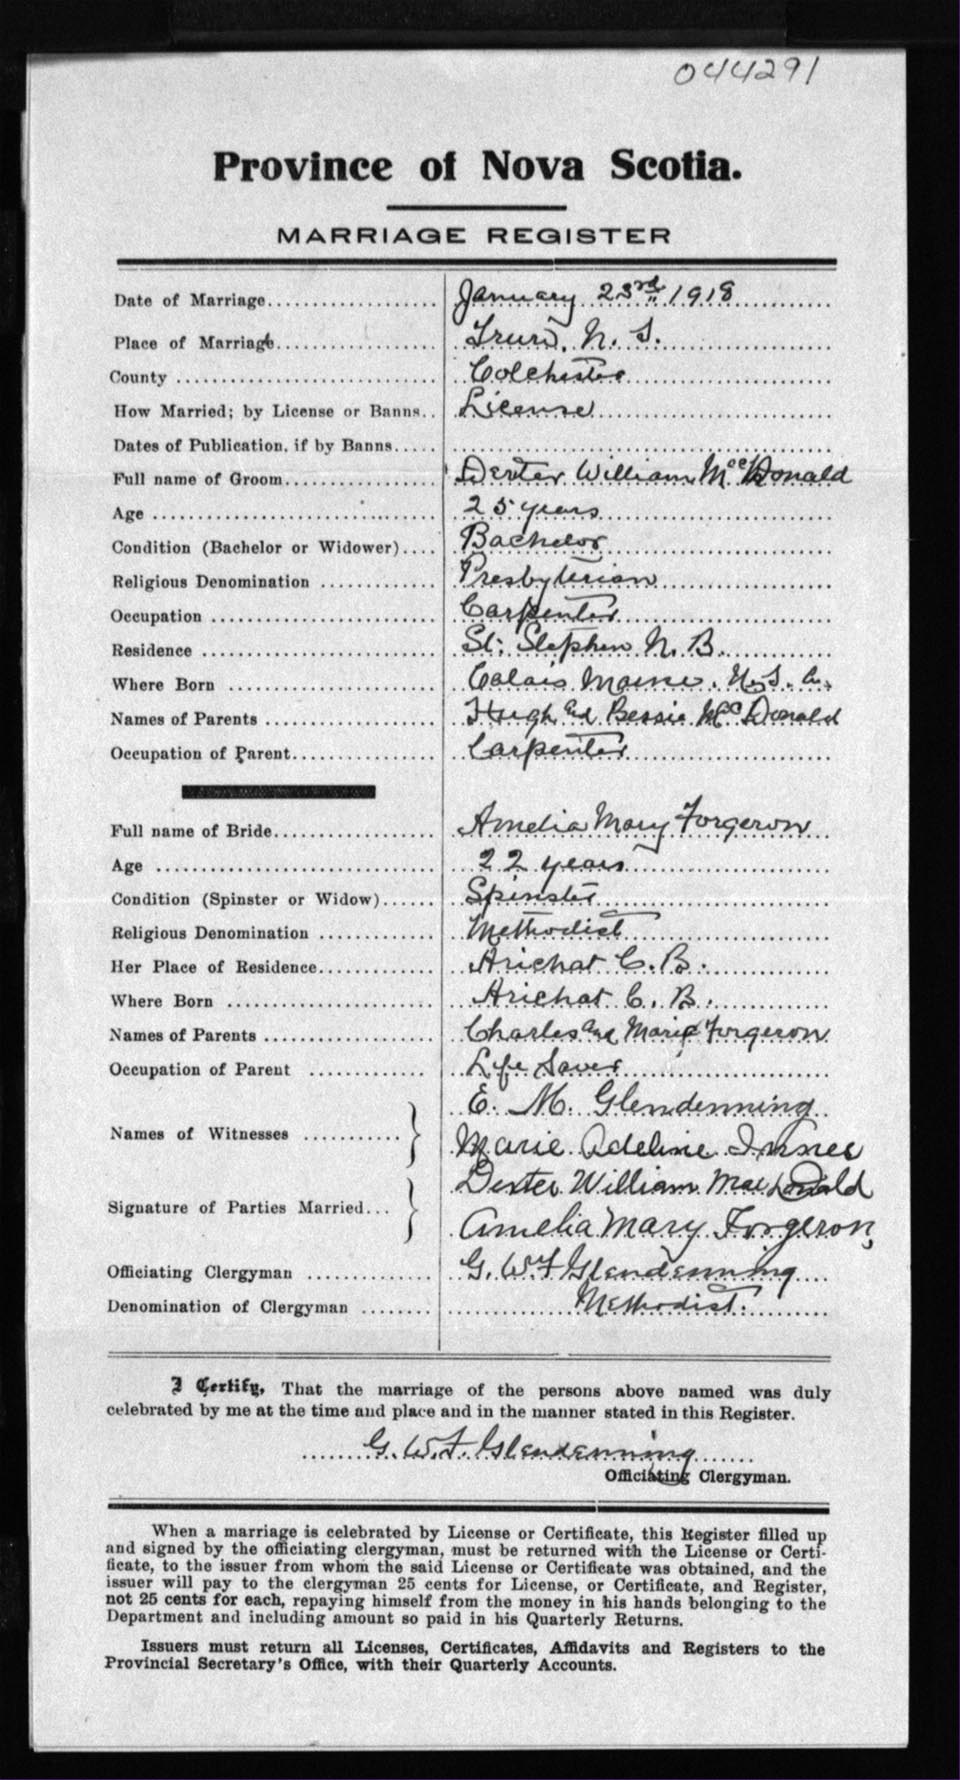 044291
Province of Nova Scotia.
MARRIAGE REGISTER
Date of Marriage January 23rd 1918
Place of Marriage Truro, N. S.
County Colchester
How Married; by License or Banns License
Dates of Publication, if by Banns
Full name of Groom Dexter William McDonald
Age 25 years
Condition (Bachelor or Widower) Bachelor
Religious Denomination Presbyterian
Occupation Carpenter
Residence St. Stephen N. B.
Where Born Calais Maine. U. S. A.
Names of Parents Hugh and Bessie McDonald
Occupation of Parent Carpenter
Full name of Bride Amelia Mary Forgeron
Age 22 years
Condition (Spinster or Widow) Spinster
Religious Denomination Methodist
Her Place of Residence Arichat C. B.
Where Born Arichat C. B.
Names of Parents Charles and Marie Forgeron
Occupation of Parent Life Saver
E. M. Glendenning
Names of Witnesses
Marie Adeline
Dexter William MacDonald
Signature of Parties Married
Amelia Mary Forgeron
Officiating Clergyman G. W. F. Glendenning
Denomination of Clergyman Methodist.
I Certify, That the marriage of the persons above named was duly
celebrated by me at the time and place and in the manner stated in this Register.
G. W. F. Glendenning
Officiating Clergyman.
When a marriage is celebrated by License or Certificate, this Register filled up
and signed by the officiating clergyman, must be returned with the License or Certi-
ficate, to the issuer from whom the said License or Certificate was obtained, and the
issuer will pay to the clergyman 25 cents for License, or Certificate, and Register,
not 25 cents for each, repaying himself from the money in his hands belonging to the
Department and including amount so paid in his Quarterly Returns.
Issuers must return all Licenses, Certificates, Affidavits and Registers to the
Provincial Secretary's Office, with their Quarterly Accounts.